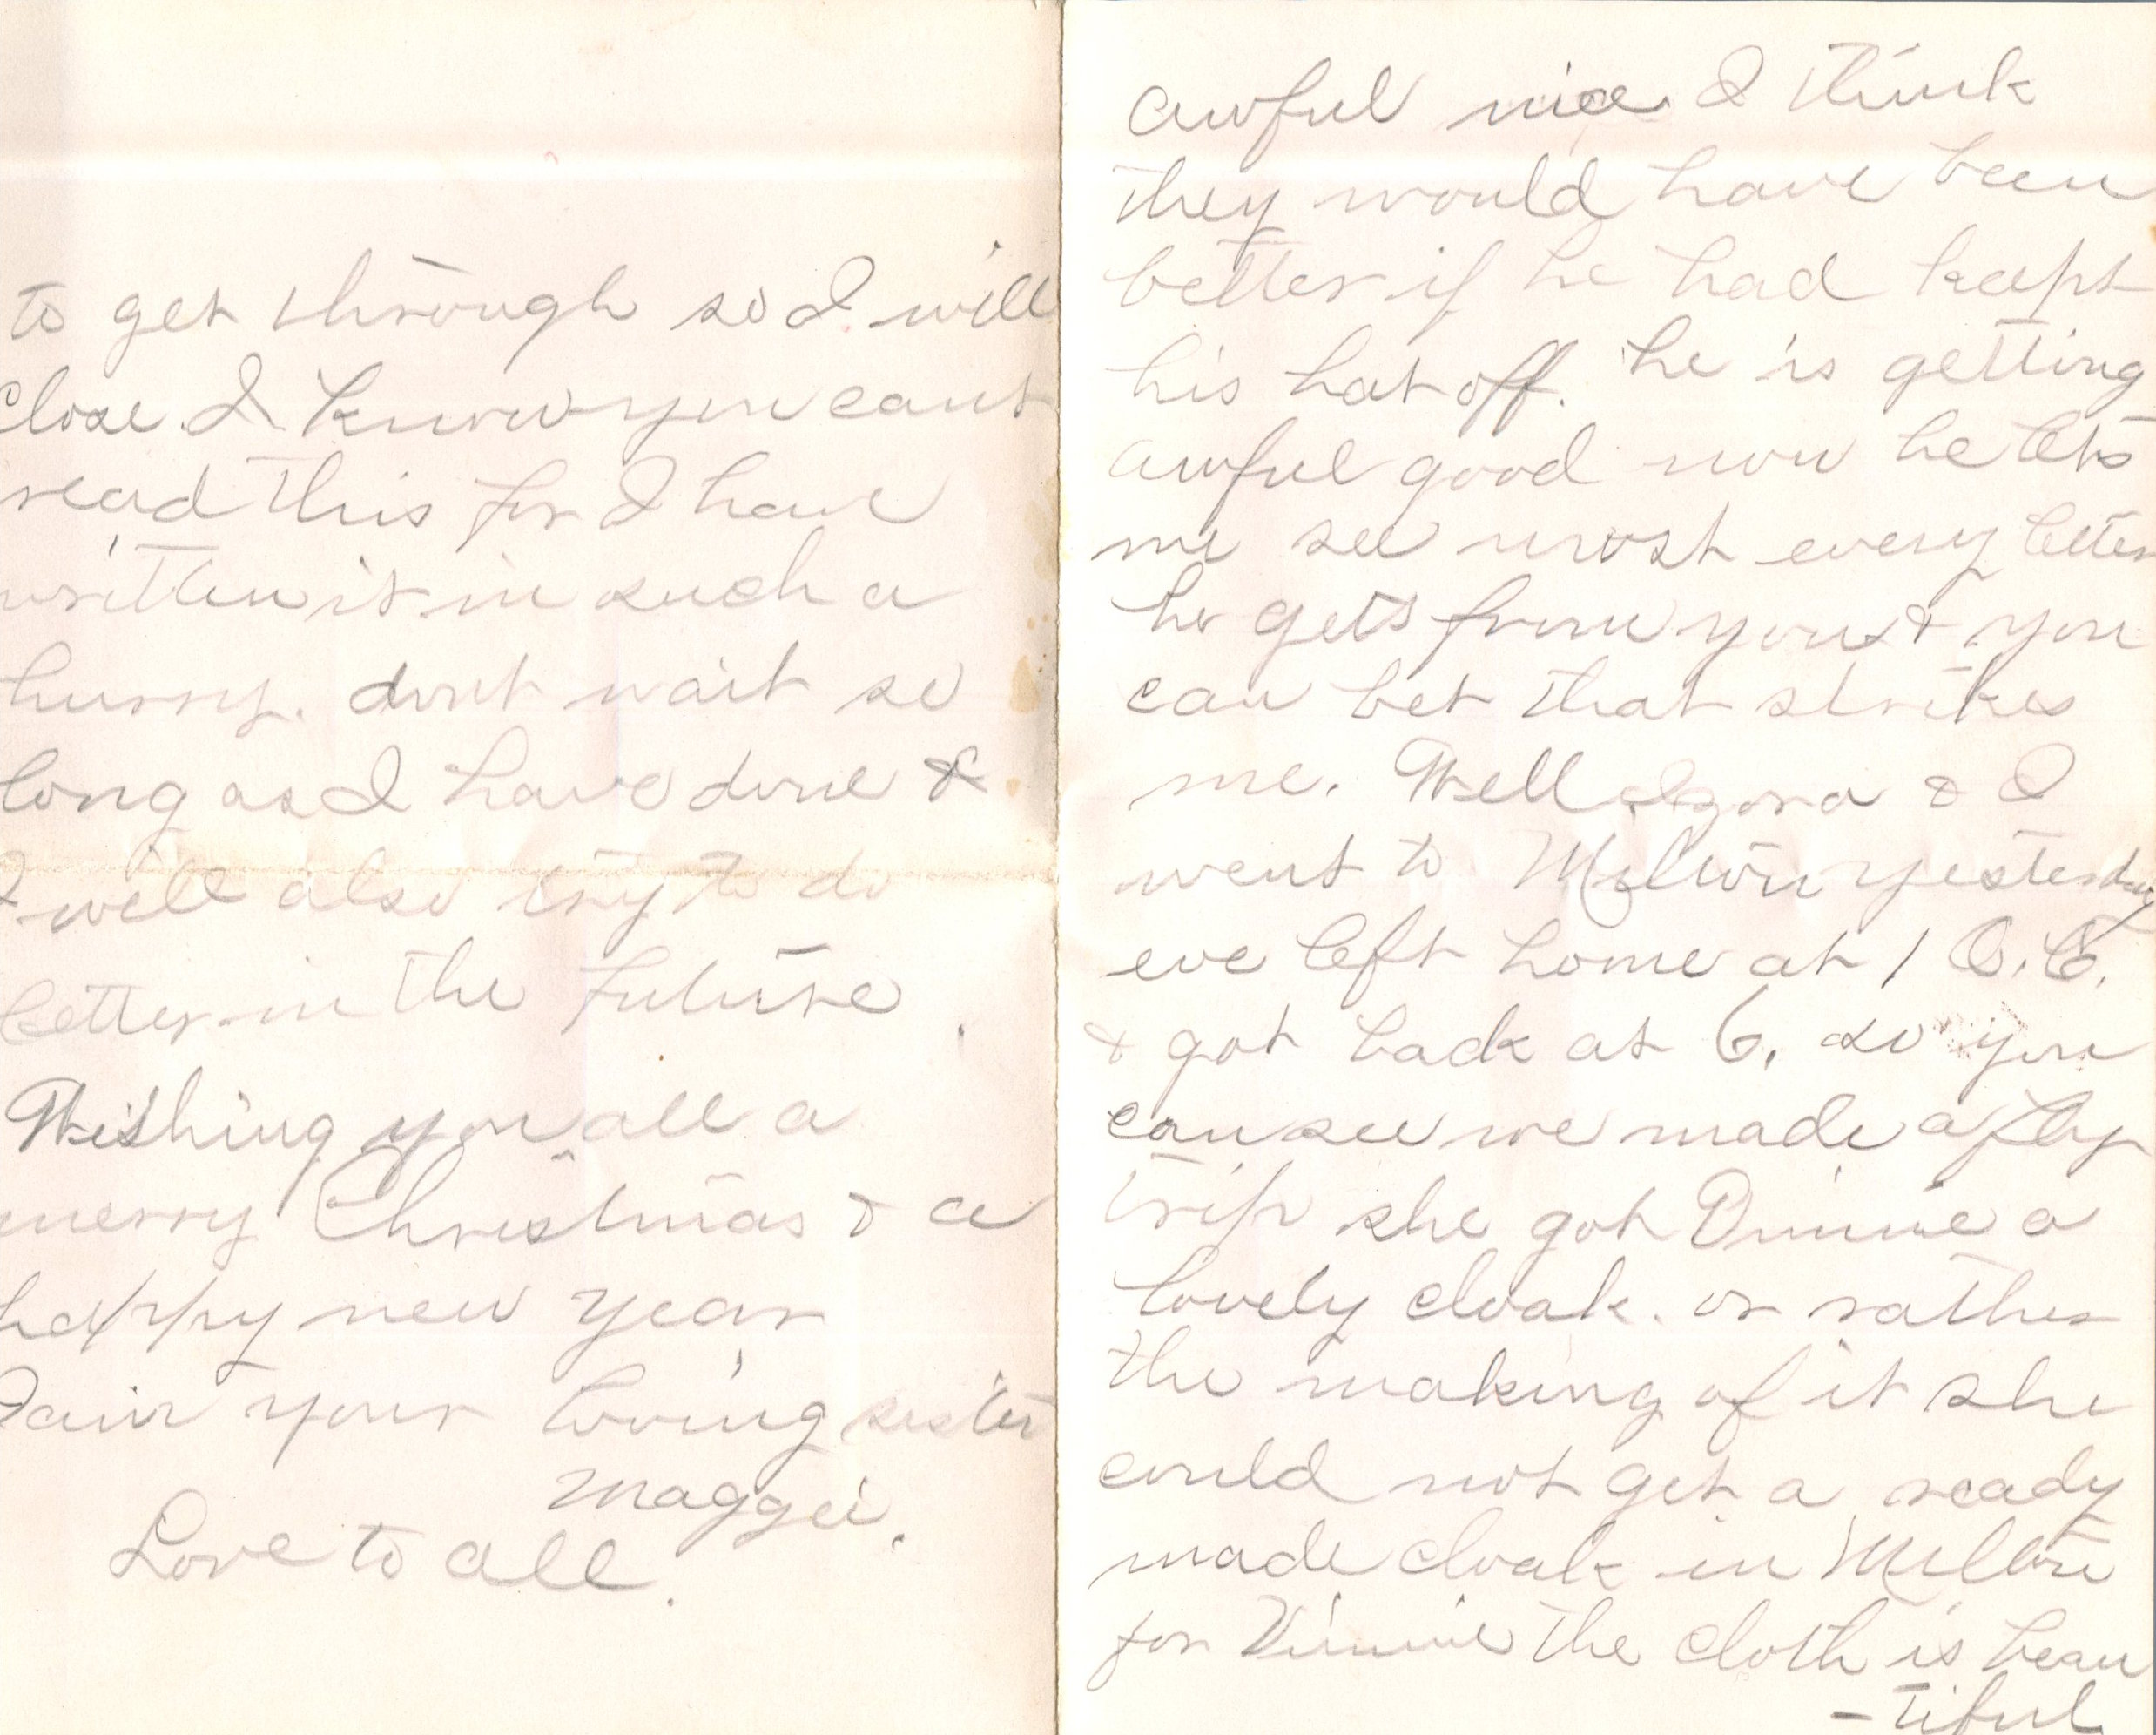 to get through so I will
close. I know you cant
read this for I have
written it in such a
hurry. dont wait so
long as I have done &
I will also try to do
better in the future.
Wishing you all a
merry Christmas & a
happy new year
I am your loving sister
Maggie.
Love to all.
awful nice I think
they would have been
better if he had keept
his hat off. he is getting
awful good now he lets
me see most every letter
he gets from you & you
can bet that strikes
me. Well & I
went to Milton yesterday
eve left home at 1 O.C.
& got back at 6. so you
can see we made a fly
trip she got Vinnie a
lovely cloak. or rather
the making of it she
could not get a ready
made cloak in Milton
for Vinnie the cloth is beau
-tiful